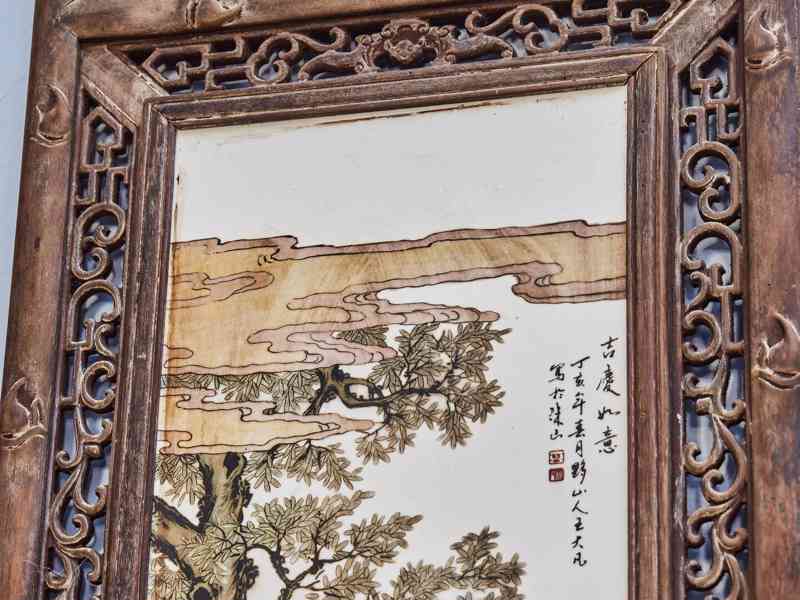 吉慶如意
丁亥年春月野山人王大凡
寫於珠山